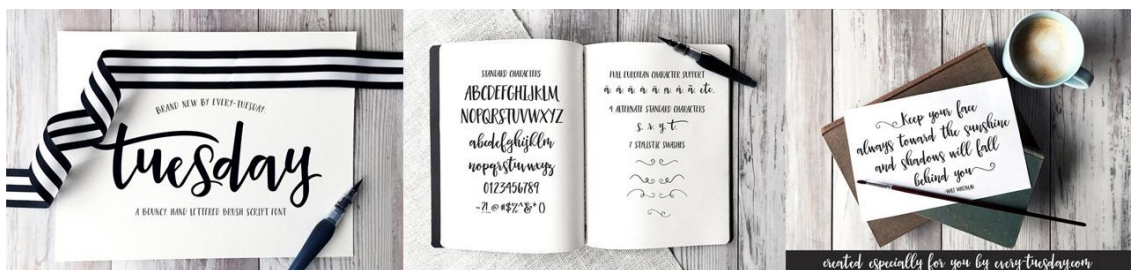 BRAND NEW BY EVERY-TUESDAY:
tuesday
A BOUNCY HAND LETTERED BRUSH SCRIPT FONT
STANDARD CHARACTERS
ABCDEFGHIJKLM
NOPQRSTUVWXYZ
abcdefghijklm
nopqrstuvwxyz
0123456789
-?! @#$%^&*()
FULL EUROPEAN CHARACTER SUPPORT
etc.
4 ALTERNATE STANDARD CHARACTERS
s. r. y. t.
7 STYLISTIC SWASHES
Keep your face
always toward the sunshine
and shadows will fall
behind you
-WALT WHITMAN
created especially for you by every-tuesday.com